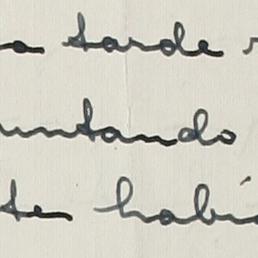 a tarde
untando
te había